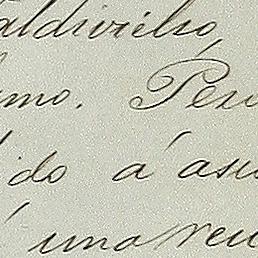 aldivielso,
mo. Peru
do á asu
una reu